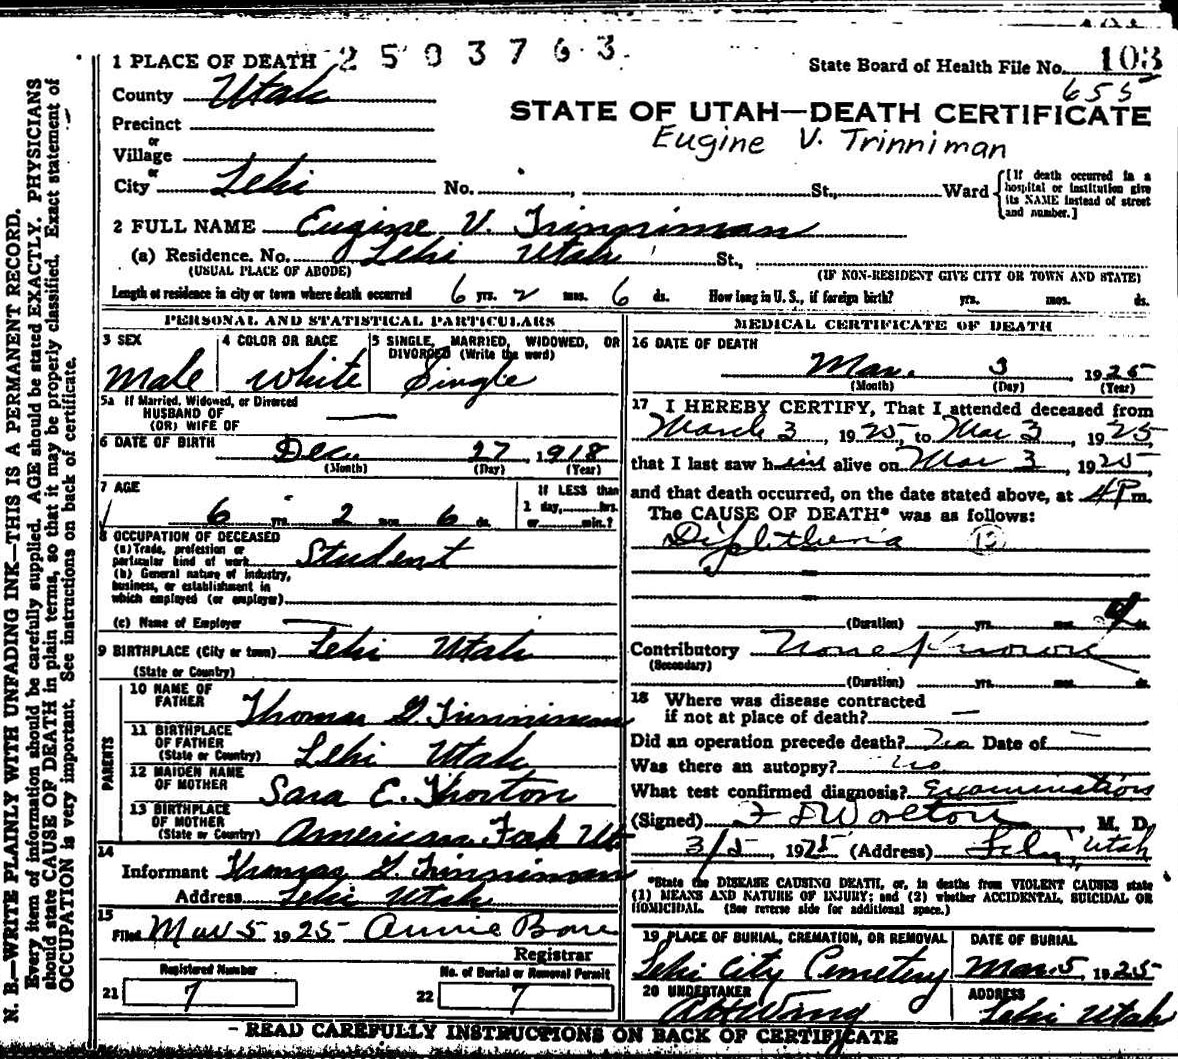 1 PLACE OF DEATH 2503763
State Board of Health File No. 103
County Utah
655
STATE OF UTAH—DEATH CERTIFICATE
Precinct
Eugine V. Trinniman
or
Village
or
City Lehi No. , St., Ward
[If death occurred in a
hospital or institution give
its NAME instead of street
and number.]
2 FULL NAME Eugine V. Trinniman
(a) Residence. No. Lehi Utah St.,
(USUAL PLACE OF ABODE) (IF NON-RESIDENT GIVE CITY OR TOWN AND STATE)
Length of residence in city or town where death occurred 6 yrs. 2 mos. 6 ds. How long in U. S., if foreign birth? yrs. mos. ds.
PERSONAL AND STATISTICAL PARTICULARS
3 SEX 4 COLOR OR RACE 5 SINGLE, MARRIED, WIDOWED, OR
DIVORCED (Write the word)
Male White Single
5a If Married, Widowed, or Divorced
HUSBAND OF
(OR) WIFE OF
6 DATE OF BIRTH Dec. 27, 1918
(Month) (Day) (Year)
7 AGE If LESS than
1 day, hrs.
6 yrs. 2 mos. 6 ds. or min.?
8 OCCUPATION OF DECEASED
(a) Trade, profession or
particular kind of work Student
(b) General nature of industry,
business, or establishment in
which employed (or employer)
(c) Name of Employer
9 BIRTHPLACE (City or town) Lehi Utah
(State or Country)
PARENTS
10 NAME OF
FATHER Thomas G Trinniman
11 BIRTHPLACE
OF FATHER
(State or Country) Lehi Utah
12 MAIDEN NAME
OF MOTHER Sara E. Thorton
13 BIRTHPLACE
OF MOTHER
(State or Country) American Fork Ut
14
Informant Thomas G. Trinniman
Address Lehi Utah
15
Filed Mar 5 1925 Annie Bone
Registrar
Registered Number No. of Burial or Removal Permit
21 7 22 7
MEDICAL CERTIFICATE OF DEATH
16 DATE OF DEATH
Mar. 3 1925
(Month) (Day) (Year)
17 I HEREBY CERTIFY, That I attended deceased from
March 3, 1925, to Mar 3, 1925,
that I last saw him alive on Mar 3, 1925,
and that death occurred, on the date stated above, at 4 P m.
The CAUSE OF DEATH* was as follows:
Diphtheria
(Duration) yrs. mos. ds.
Contributory None Known
(Secondary)
(Duration) yrs. mos. ds.
18 Where was disease contracted
if not at place of death? —
Did an operation precede death? no Date of —
Was there an autopsy? no
What test confirmed diagnosis? Examination
(Signed) M. D.
3/5, 1925 (Address) Lehi, Utah
*State the DISEASE CAUSING DEATH, or, in deaths from VIOLENT CAUSES state
(1) MEANS AND NATURE OF INJURY; and (2) whether ACCIDENTAL, SUICIDAL OR
HOMICIDAL. (See reverse side for additional space.)
19 PLACE OF BURIAL, CREMATION, OR REMOVAL DATE OF BURIAL
Lehi City Cemetery Mar. 5, 1925
20 UNDERTAKER ADDRESS
Wing Lehi Utah
- READ CAREFULLY INSTRUCTIONS ON BACK OF CERTIFICATE
N. B.—WRITE PLAINLY WITH UNFADING INK—THIS IS A PERMANENT RECORD.
Every item of information should be carefully supplied. AGE should be stated EXACTLY. PHYSICIANS
should state CAUSE OF DEATH in plain terms, so that it may be properly classified. Exact statement of
OCCUPATION is very important. See instructions on back of certificate.